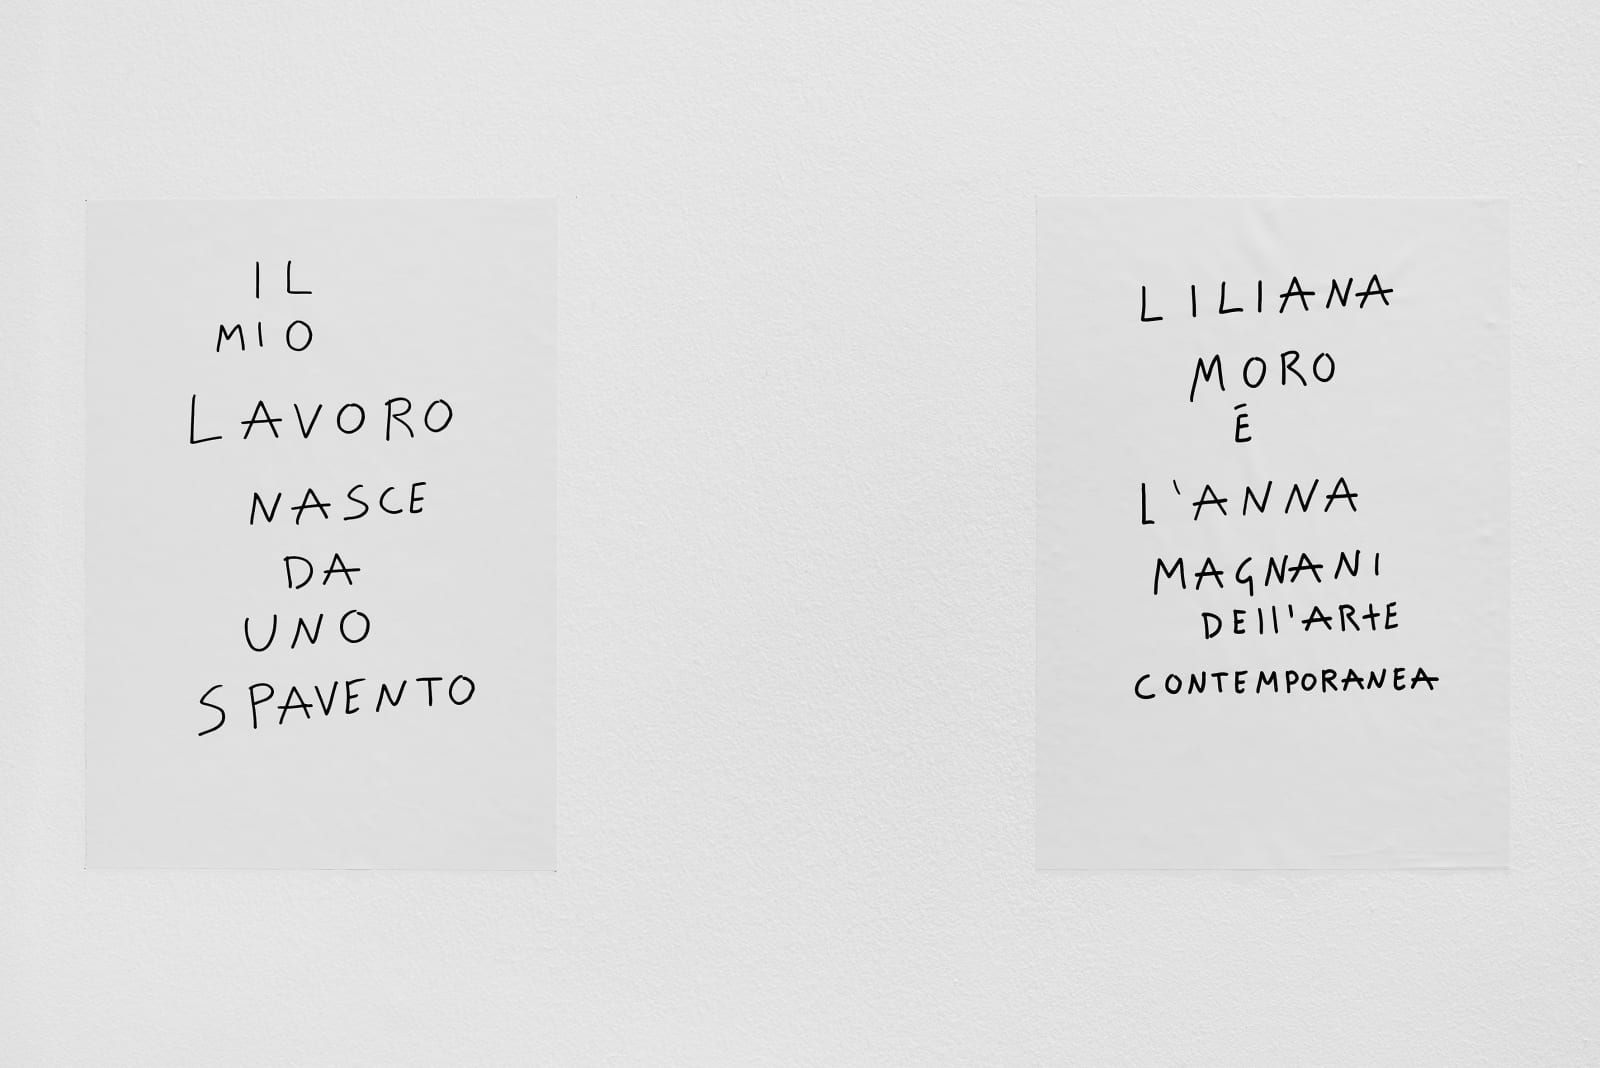 IL
MIO
LAVORO
NASCE
DA
UNO
SPAVENTO
LILIANA
MORO
É
L'ANNA
MAGNANI
DEll'ARTE
CONTEMPORANEA